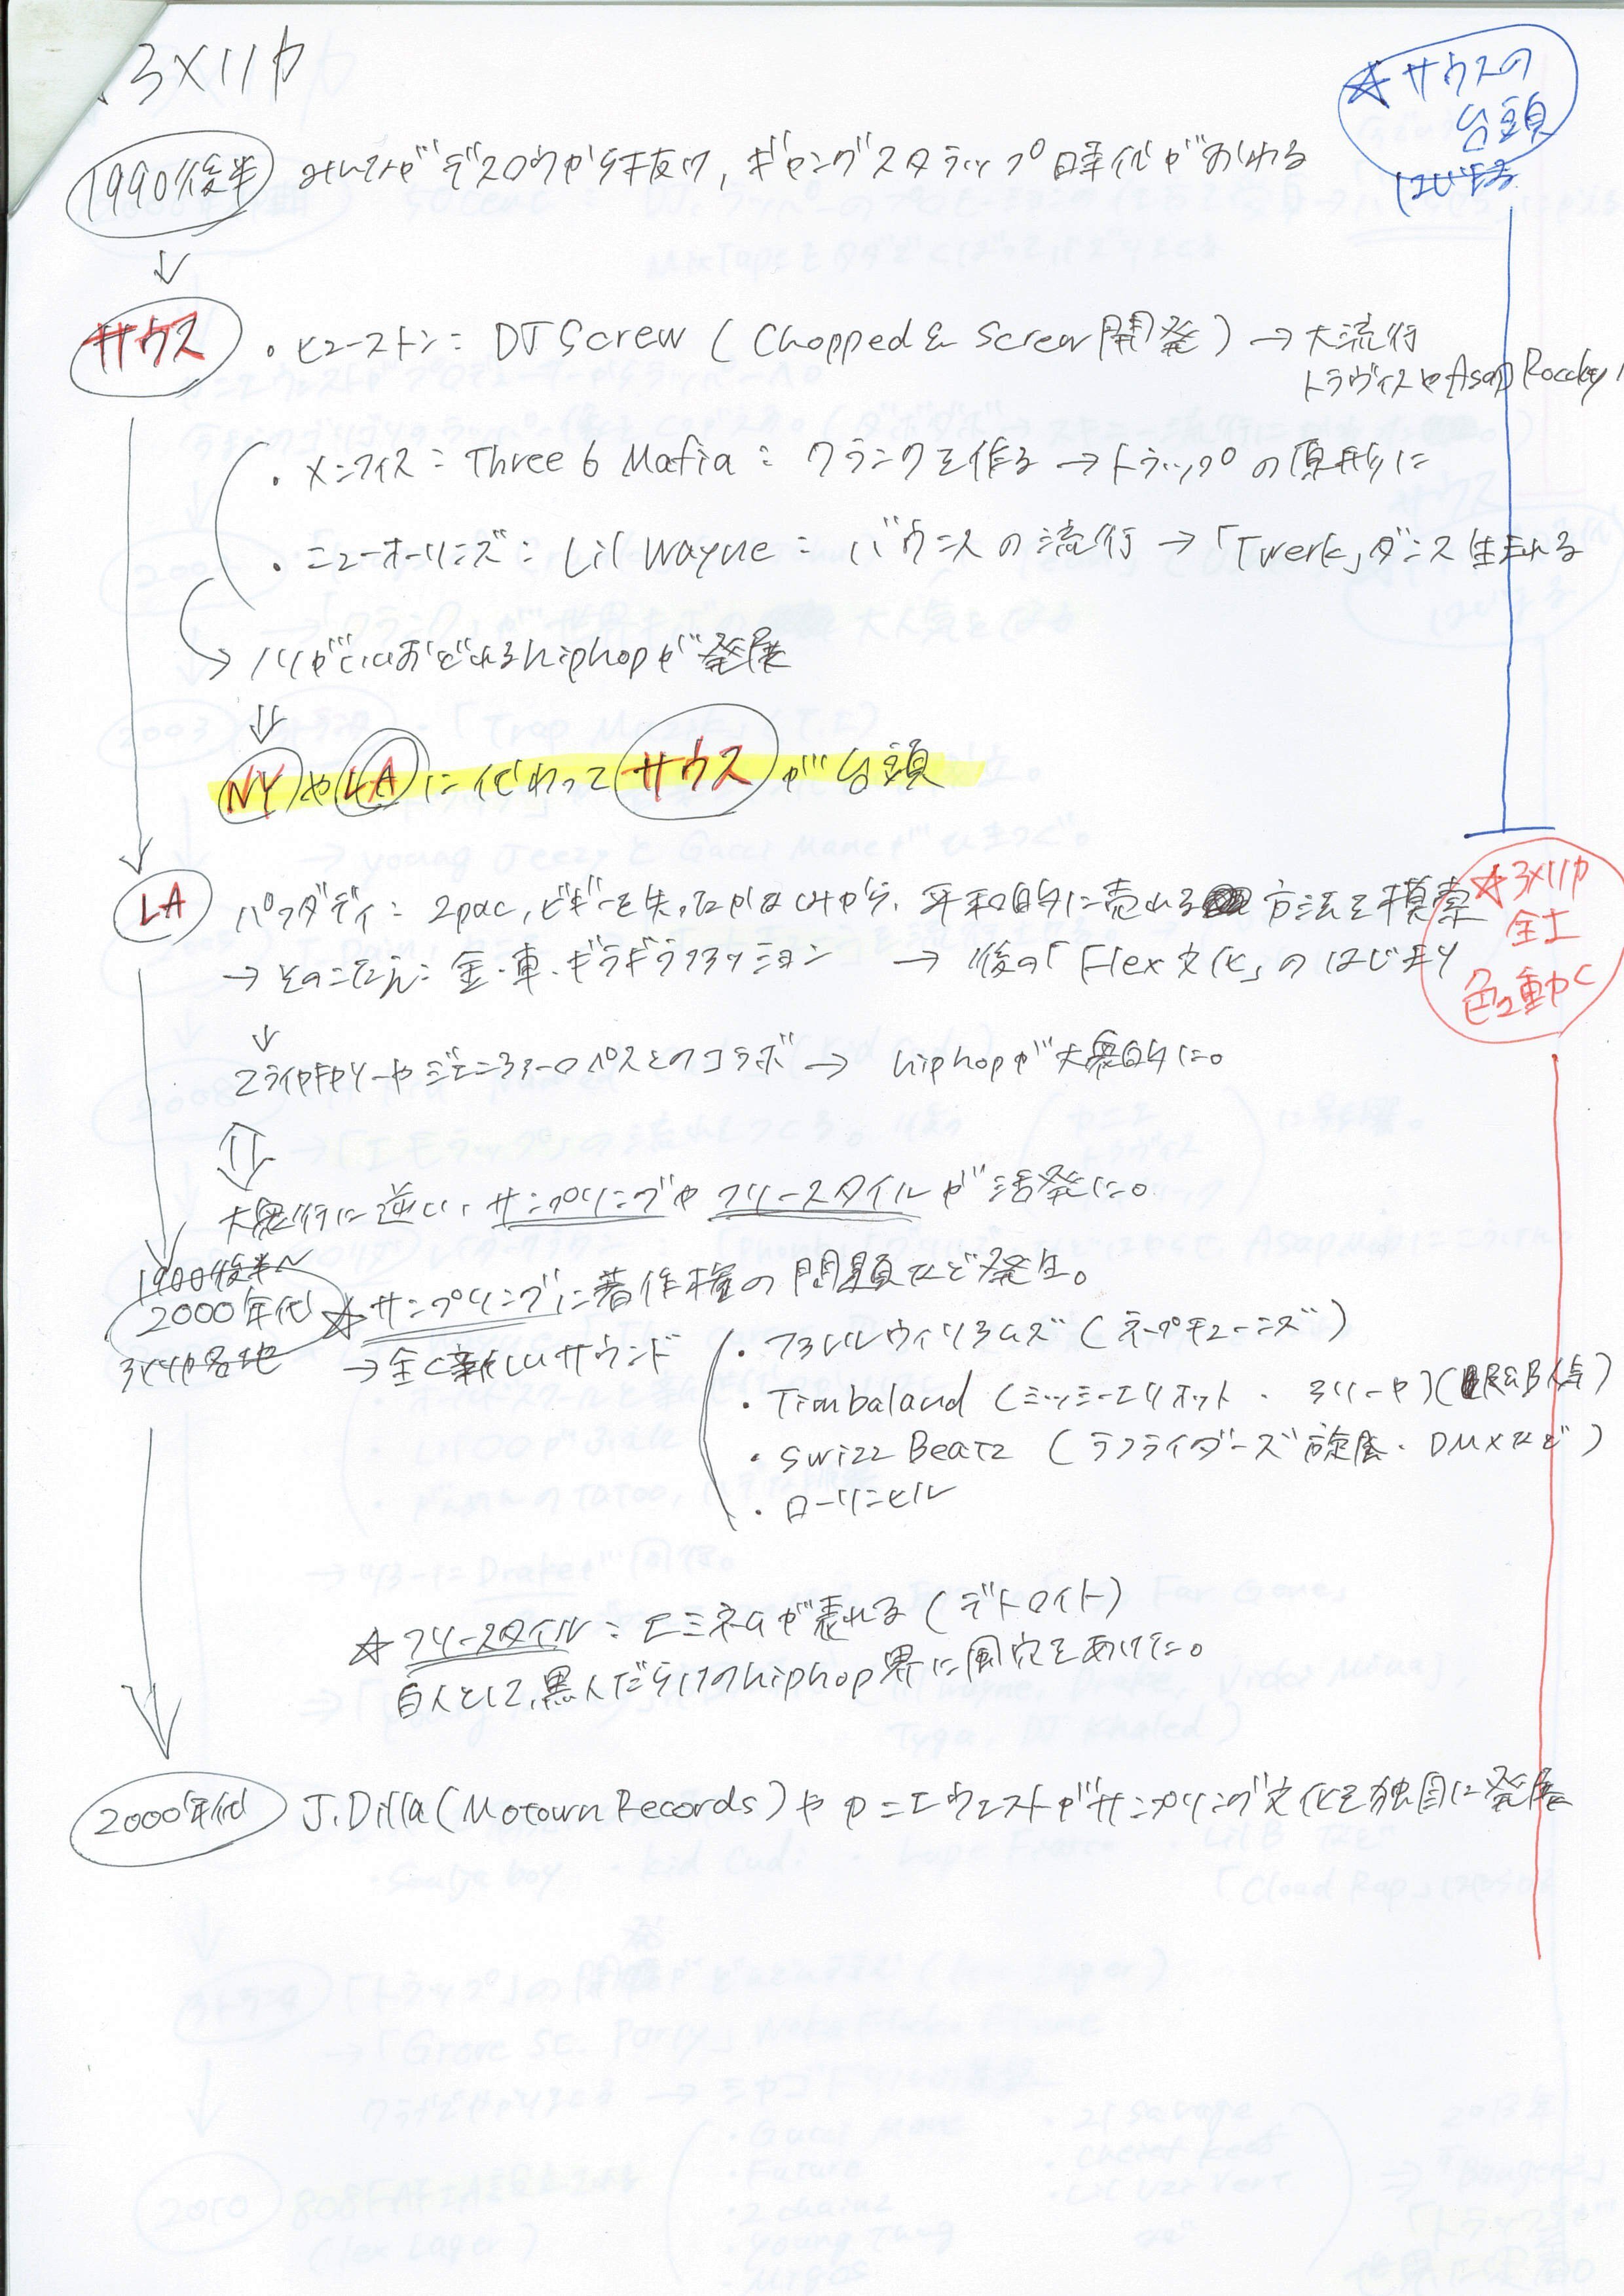 アメリカ
☆サウスの
台頭
はじまる
1990後半 ドレがデスロウから抜け,ギャングスタラップ時代がおわる
↓
サウス ・ヒューストン:DJ Screw(Chopped & Screw開発)→大流行
トラヴィスやAsap Rocckey
・メンフィス:Three 6 Mafia:クランクを作る→トラップの原形に
・ニューオーリンズ:Lil Wayne:バウンスの流行→「Twerk」ダンス生まれる
→ノリがいいおどれるhiphopが発展
⇓
NYやLAに代わってサウスが台頭
LA パフダディ:2pac,ビギーを失ったかなしみから,平和的に売れる方法を模索
→そのこたえ:金・車・ギラギラファッション →後の「Flex文化」のはじまり
☆アメリカ
全土
色々動く
↓
マライヤキャリーやジェニファーロペスとのコラボ→ hiphopが大衆的に。
⇕
大衆行に逆い,サンプリングやフリースタイルが活発に。
1900後半~
2000年代 ☆サンプリングに著作権の問題など発生。
アメリカ各地 →全く新しいサウンド
・ファレルウィリアムズ(ネープチューンズ)
・Timbaland(ミッシーエリオット・アリーヤ)(R&B係)
・Swizz Beatz(ラフライダーズ旋風・DMXなど)
・ローリンヒル
☆フリースタイル:エミネムが表れる(デトロイト)
白人として,黒人だらけのhiphop界に風穴をあけた。
2000年代 J.Dilla(Motown Records)やカニエウェストがサンプリング文化を独自に発展